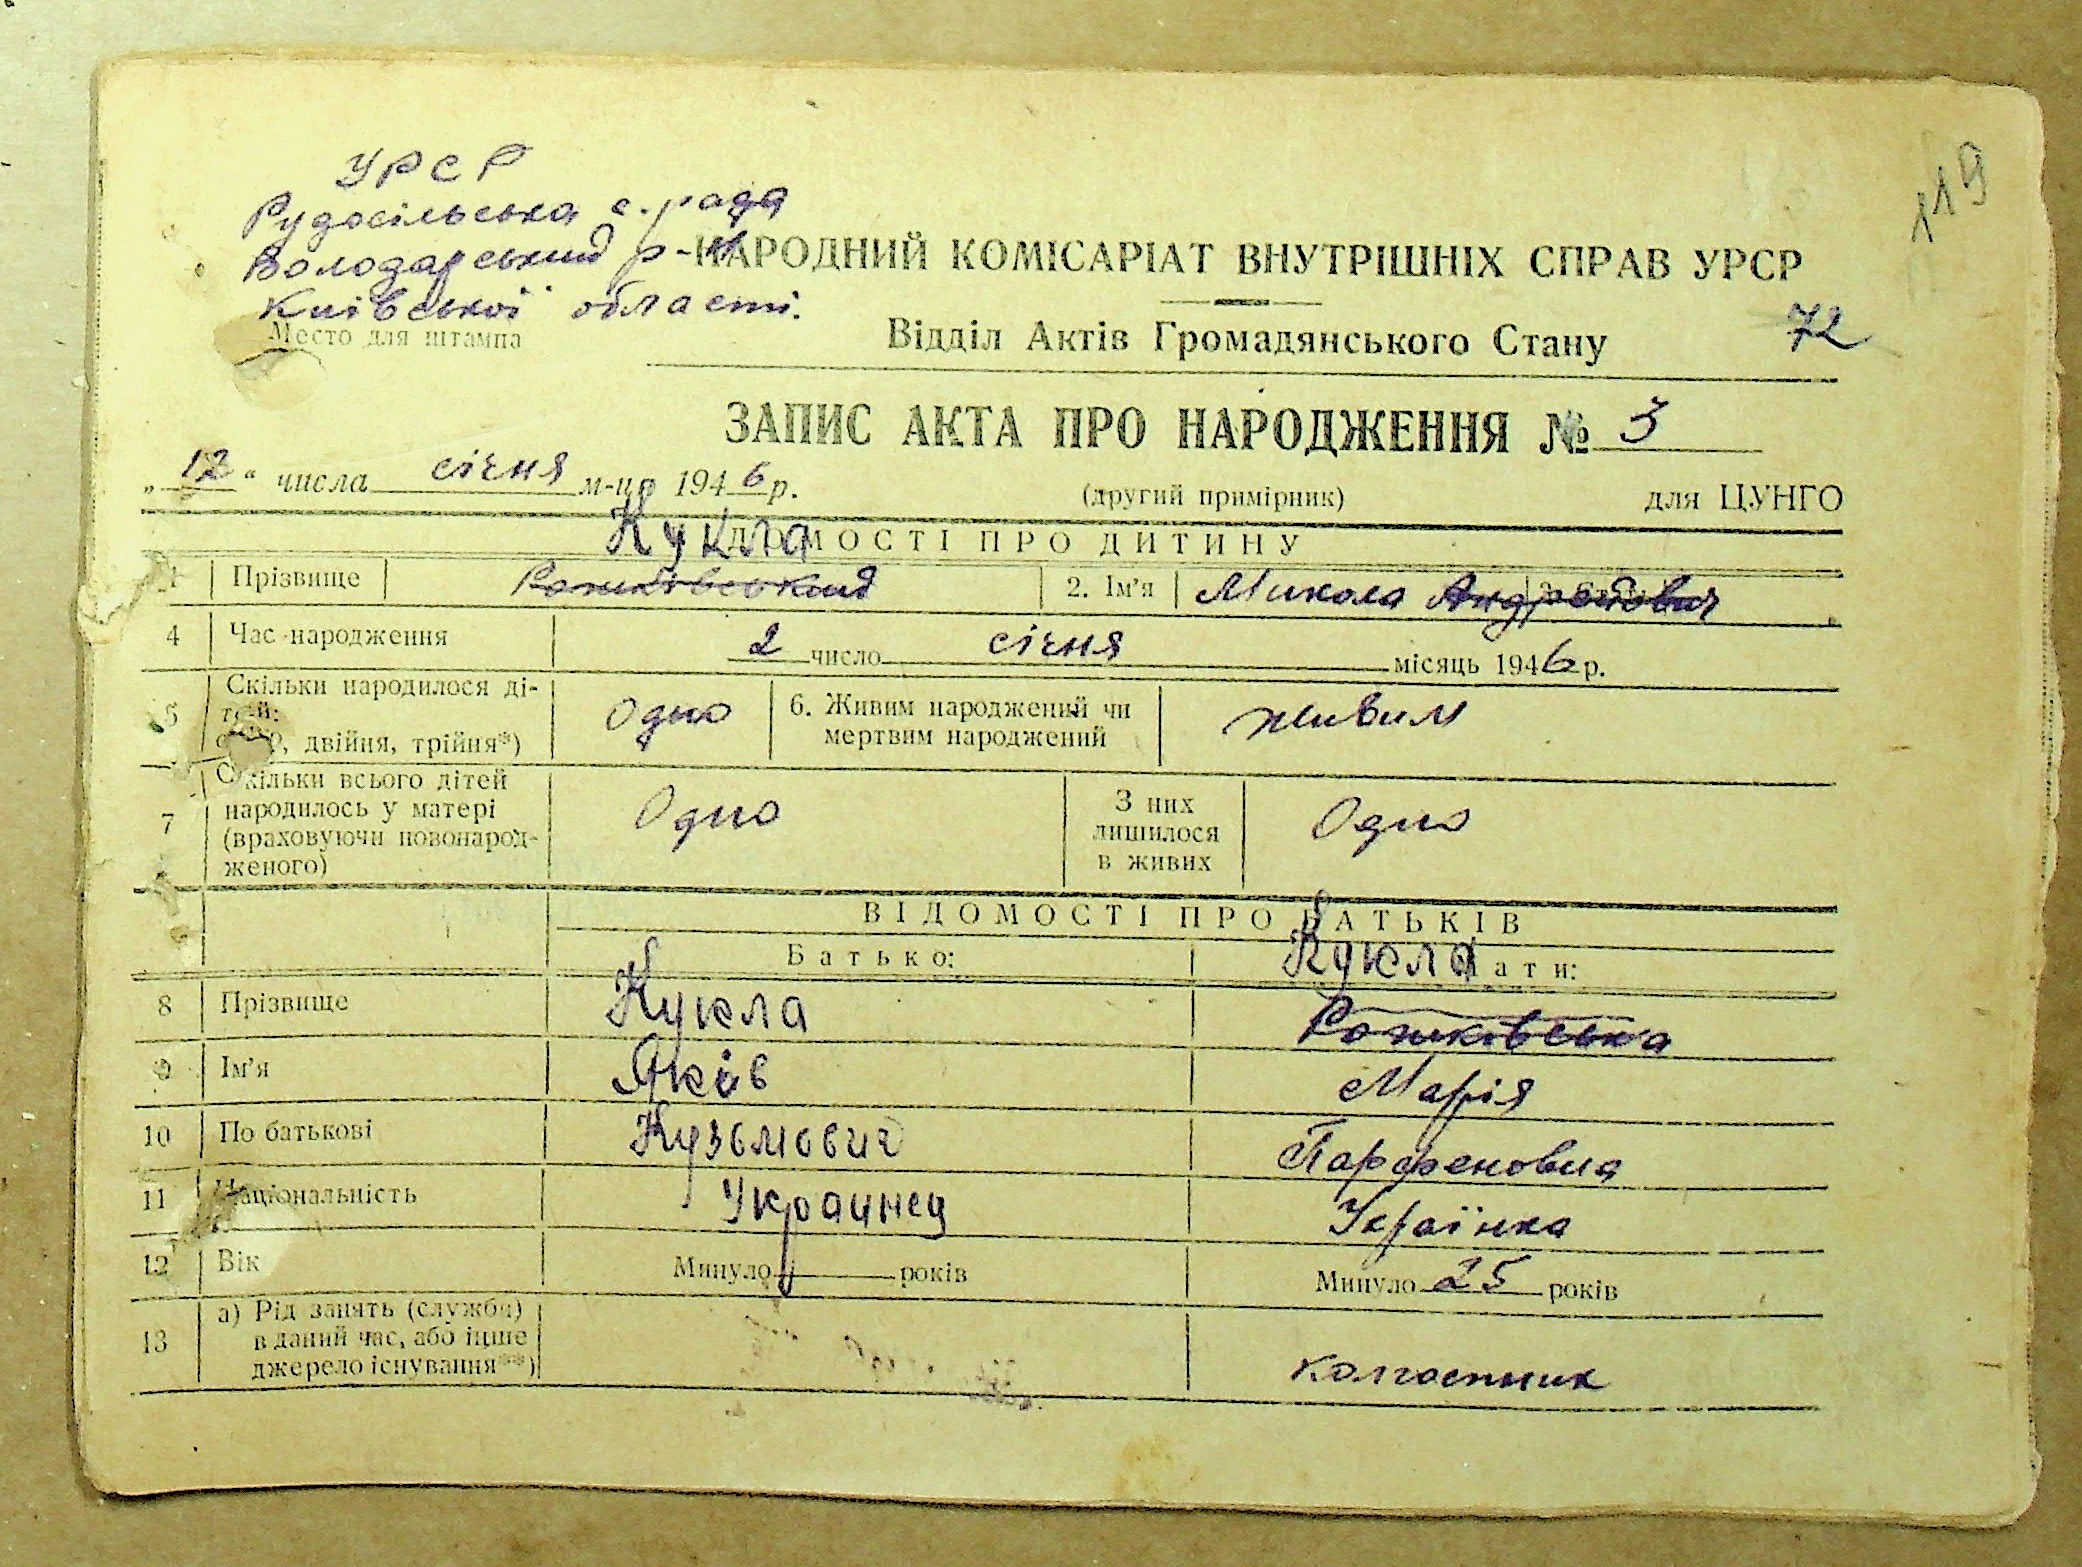 119
УРСР
Рудосільська с. рада
Володарський р-н
Київської області.
Место для штампа
НАРОДНИЙ КОМІСАРІАТ ВНУТРІШНІХ СПРАВ УРСР
Відділ Актів Громадянського Стану
72
ЗАПИС АКТА ПРО НАРОДЖЕННЯ № 3
„12“ числа січня м-ця 1946 р. (другий примірник) для ЦУНГО
ВІДОМОСТІ ПРО ДИТИНУ
Кукла
1 Прізвище Рожковський 2. Ім'я Микола Андрейович
4 Час народження 2 число січня місяць 1946 р.
5 Скільки народилося ді-
тей:
одно, двійня, трійня*)
Одно
6. Живим народжений чи
мертвим народжений
живим
7 Скільки всього дітей
народилось у матері
(враховуючи новонарод-
женого)
Одно
З них
лишилося
в живих
Одно
ВІДОМОСТІ ПРО БАТЬКІВ
Батько: Мати:
Кукла
8 Прізвище Кукла Рожковська
9 Ім'я Яків Марія
10 По батькові Кузьмович Парфеновна
11 Національність Украинец Українка
12 Вік Минуло років Минуло 25 років
13 а) Рід занять (служби)
в даний час, або інше
джерело існування**)
колгоспник